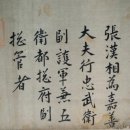 張漢相為嘉善
大夫行忠武衛
副護軍兼五
衛都摠府副
摠管者